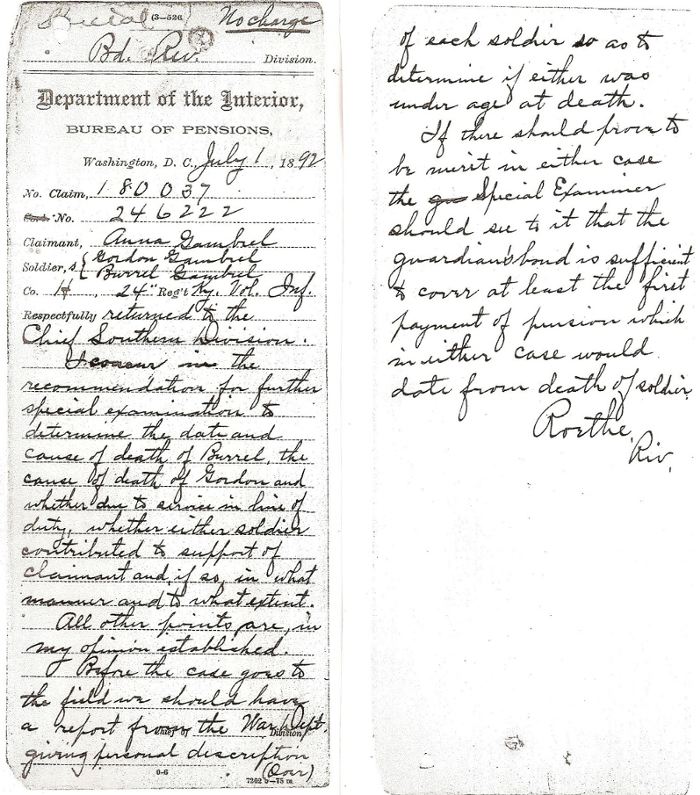 Special (3-526) No charge
Bd. Rev. Division.
Department of the Interior,
BUREAU OF PENSIONS,
Washington, D. C., July 1, 1892
No. Claim, 180037
No. 246222
Claimant, Anna Gambrel
Soldier, s { Gordon Gambrel
Burrel Gambrel
Co. H, 24" Reg't Ky. Vol. Inf.
Respectfully returned to the
Chief Southern Division.
I concur in the
recommendation for further
special examination to
determine the date and
cause of death of Burrel, the
cause of death of Gordon and
whether due to service in line of
duty, whether either soldier
contributed to support of
claimant and, if so, in what
manner and to what extent.
All other points are, in
my opinion established.
Before the case goes to
the field we should have
a report from the War Dept.
Division,
giving personal description
(Over)
0-6
of each soldier so as to
determine if either was
under age at death.
If there should prove to
be merit in either case
the Special Examiner
should see to it that the
guardian's bond is sufficient
to cover at least the first
payment of pension which
in either case would
date from death of soldier.
Rev.